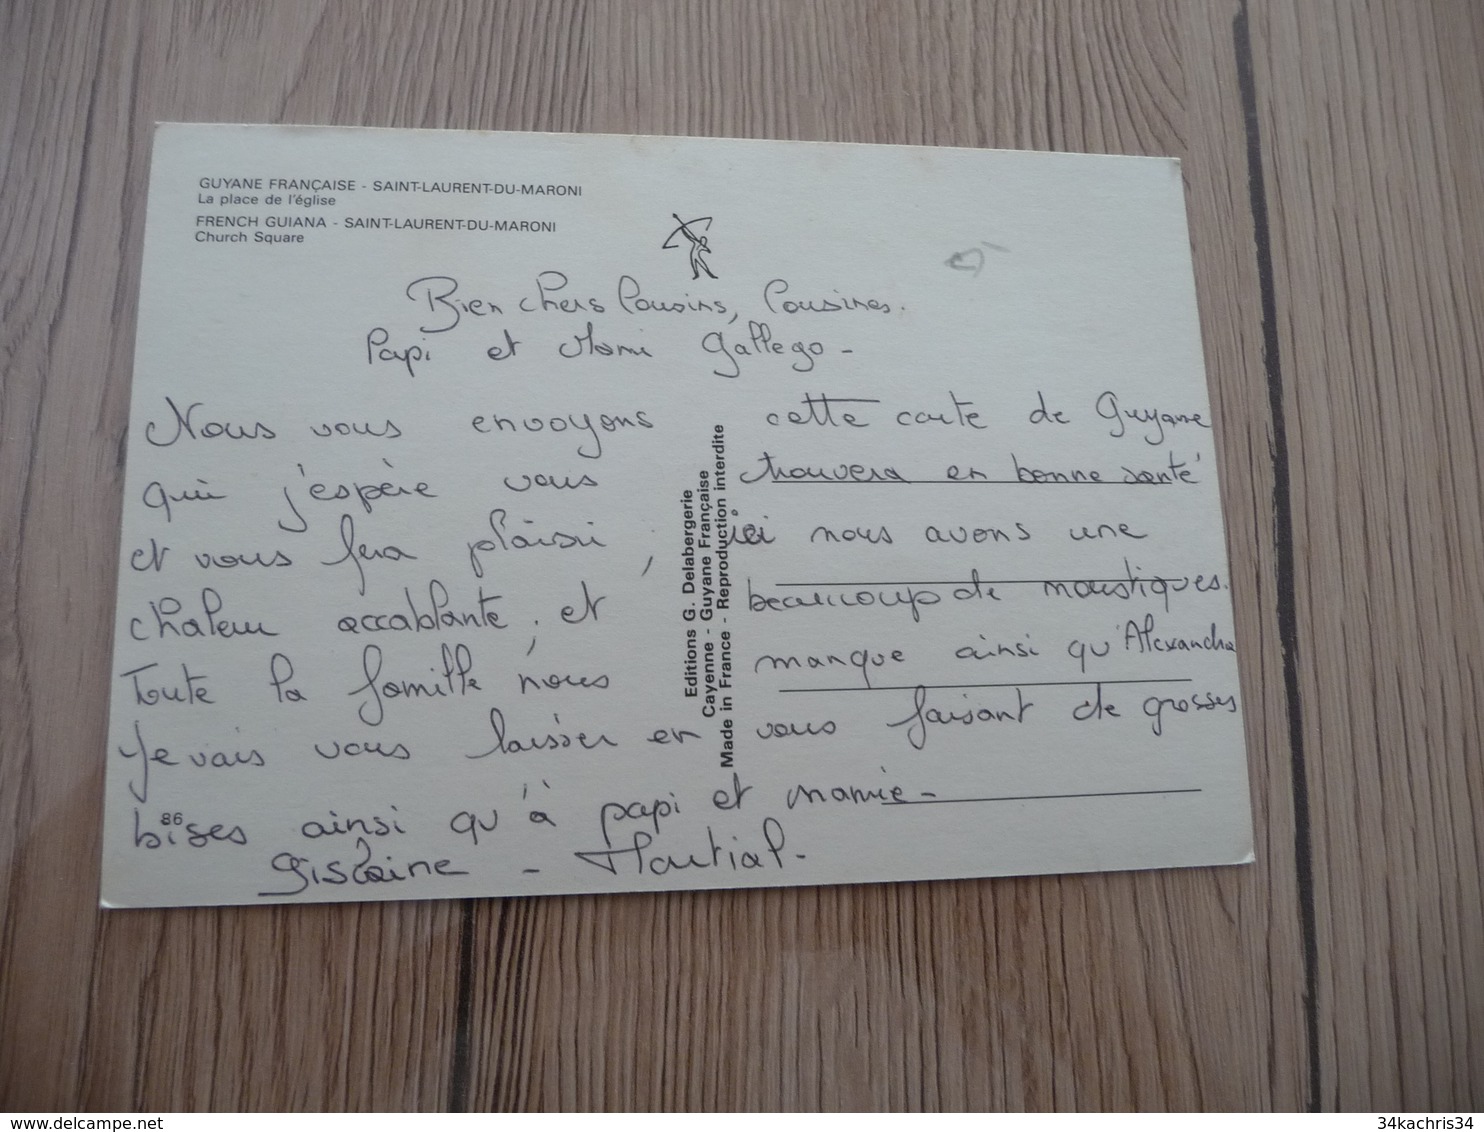 GUYANE FRANÇAISE - SAINT-LAURENT-DU-MARONI
La place de l'église
FRENCH GUIANA - SAINT-LAURENT-DU-MARONI
Church Square
Bien chers Cousins, Cousines.
Papi et Mami Gallego -
Nous vous envoyons cette carte de Guyane
qui j'espère vous trouvera en bonne santé
et vous fera plaisir, ici nous avons une
chaleur accablante, et beaucoup de moustiques.
Toute la famille nous manque ainsi qu'Alexandra
Je vais vous laisser en vous faisant de grosses
bises ainsi qu'à papi et mamie -
Gislaine - Martial -
86
Editions G. Delabergerie
Cayenne - Guyane Française
Made in France - Reproduction interdite
www.delcampe.net
34kachris34